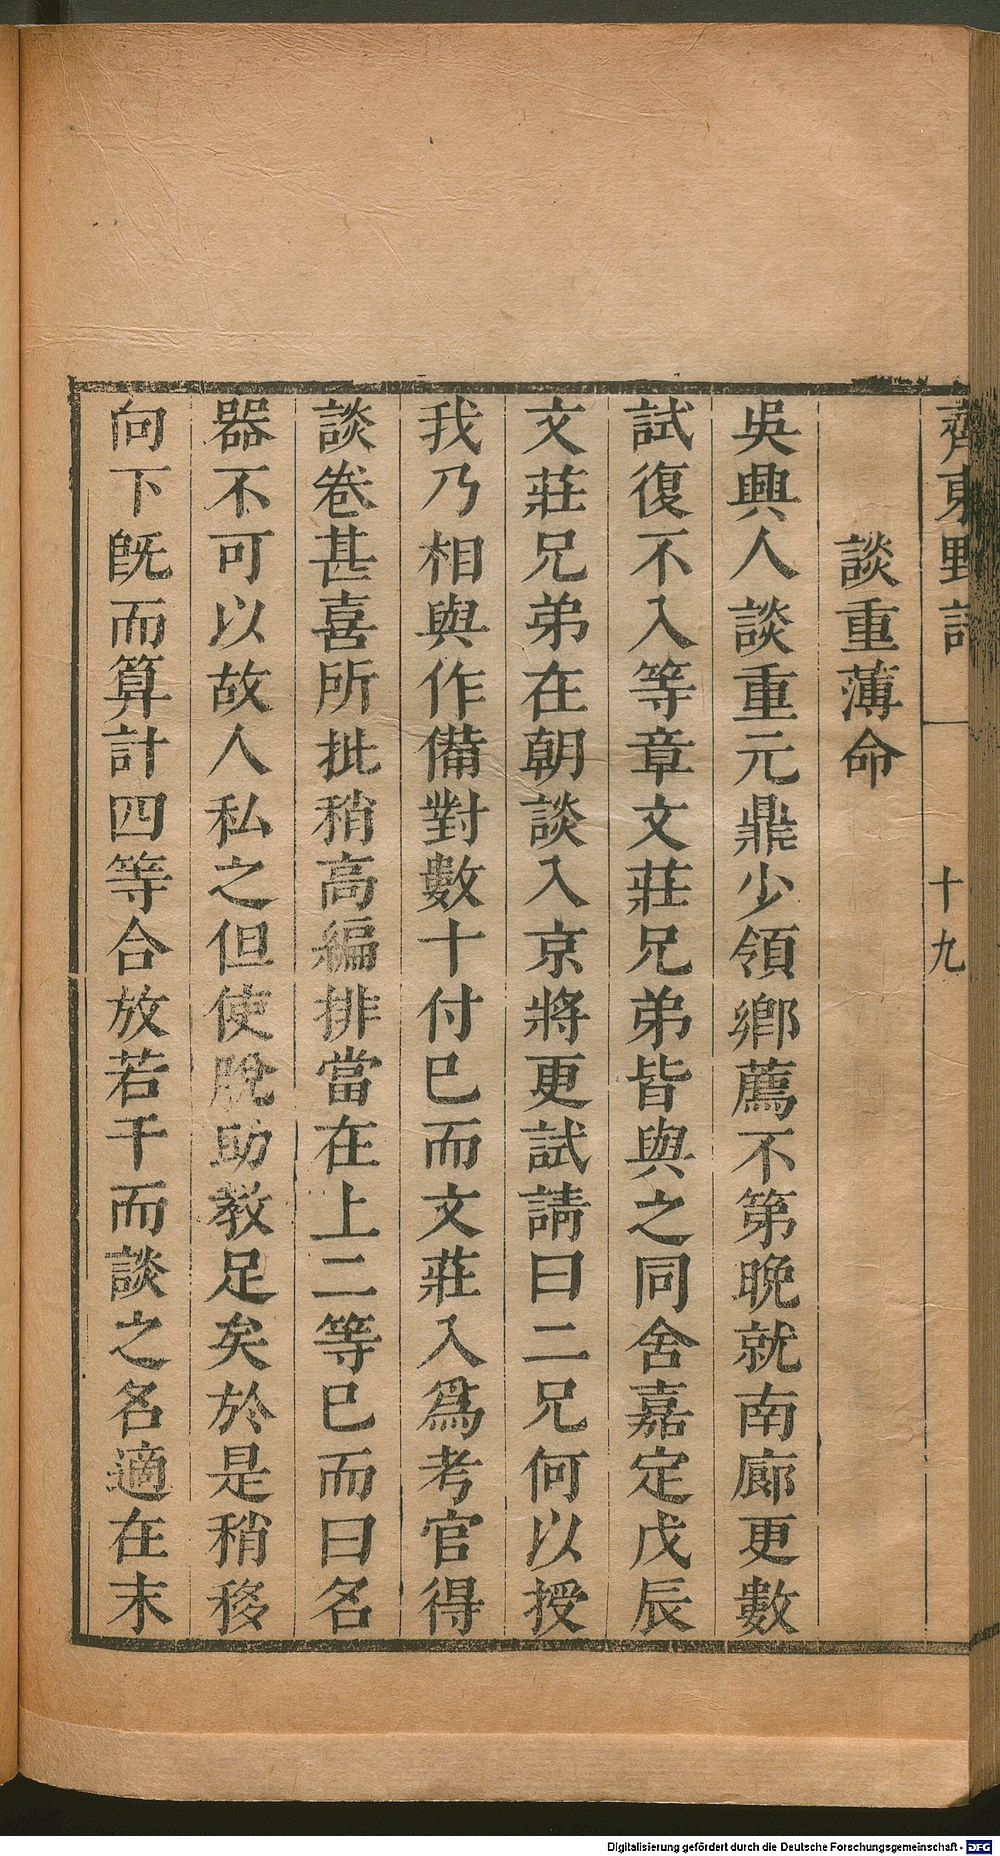 齊東野語
十九
談重薄命
吳興人談重元鼎少領鄉薦不第晚就南廊更數
試復不入等章文莊兄弟皆與之同舍嘉定戊辰
文莊兄弟在朝談入京將更試請曰二兄何以授
我乃相與作備對數十付巳而文莊入爲考官得
談卷甚喜所批稍高編排當在上二等巳而曰名
器不可以故人私之但使脫助教足矣於是稍移
向下旣而算計四等合放若干而談之名適在末
Digitalisierung gefördert durch die Deutsche Forschungsgemeinschaft - DFG